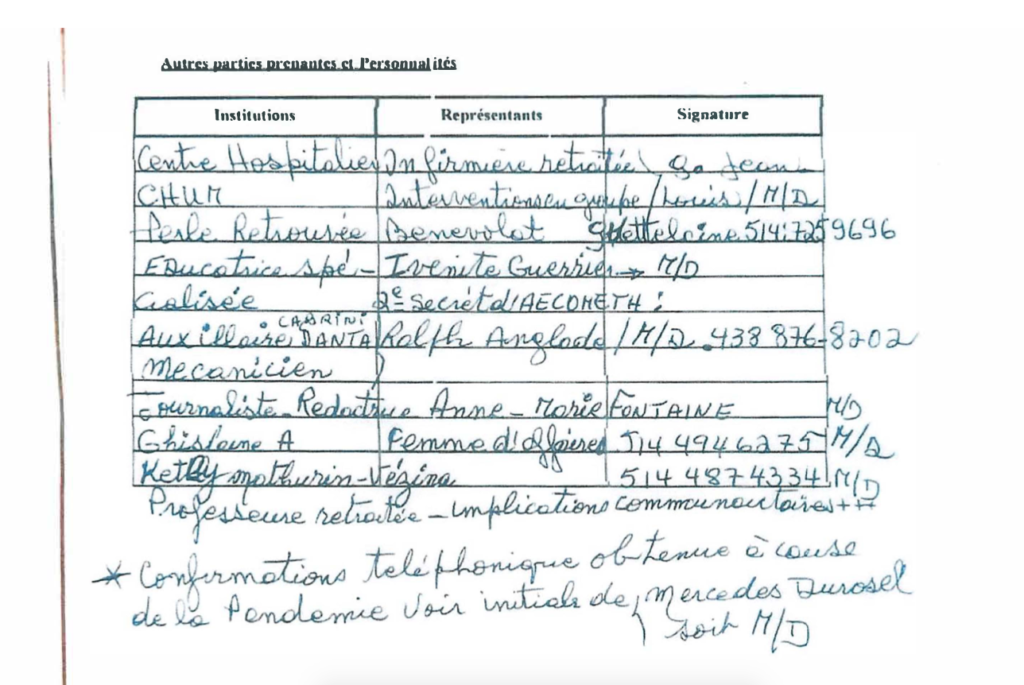 Autres parties prenantes et Personnalités
Institutions Représentants Signature
Centre Hospitalier Infirmière retraitée Jean
CHUM Interventions en groupe / Louis / M/D
Perle Retrouvée Benevolat 514.7259696
Educatrice spé- Ivenite Guerrier → M/D
cialisée 2e Secrét d'AECOMETH :
CABRINI
Auxilloire DANTA Ralph Anglade / M/D .438 876-8202
Mecanicien
Journaliste-Redactrice Anne-Marie FONTAINE M/D
Ghislaine A Femme d'affaires 514 4946275 M/D
Ketly Mathurin-Vézina 514 4874334 M/D
Professeure retraitée - implications communautaires ++
* Confirmations teléphonique obtenue à cause
de la Pandemie Voir initials de Mercedes Durosel
soit M/D